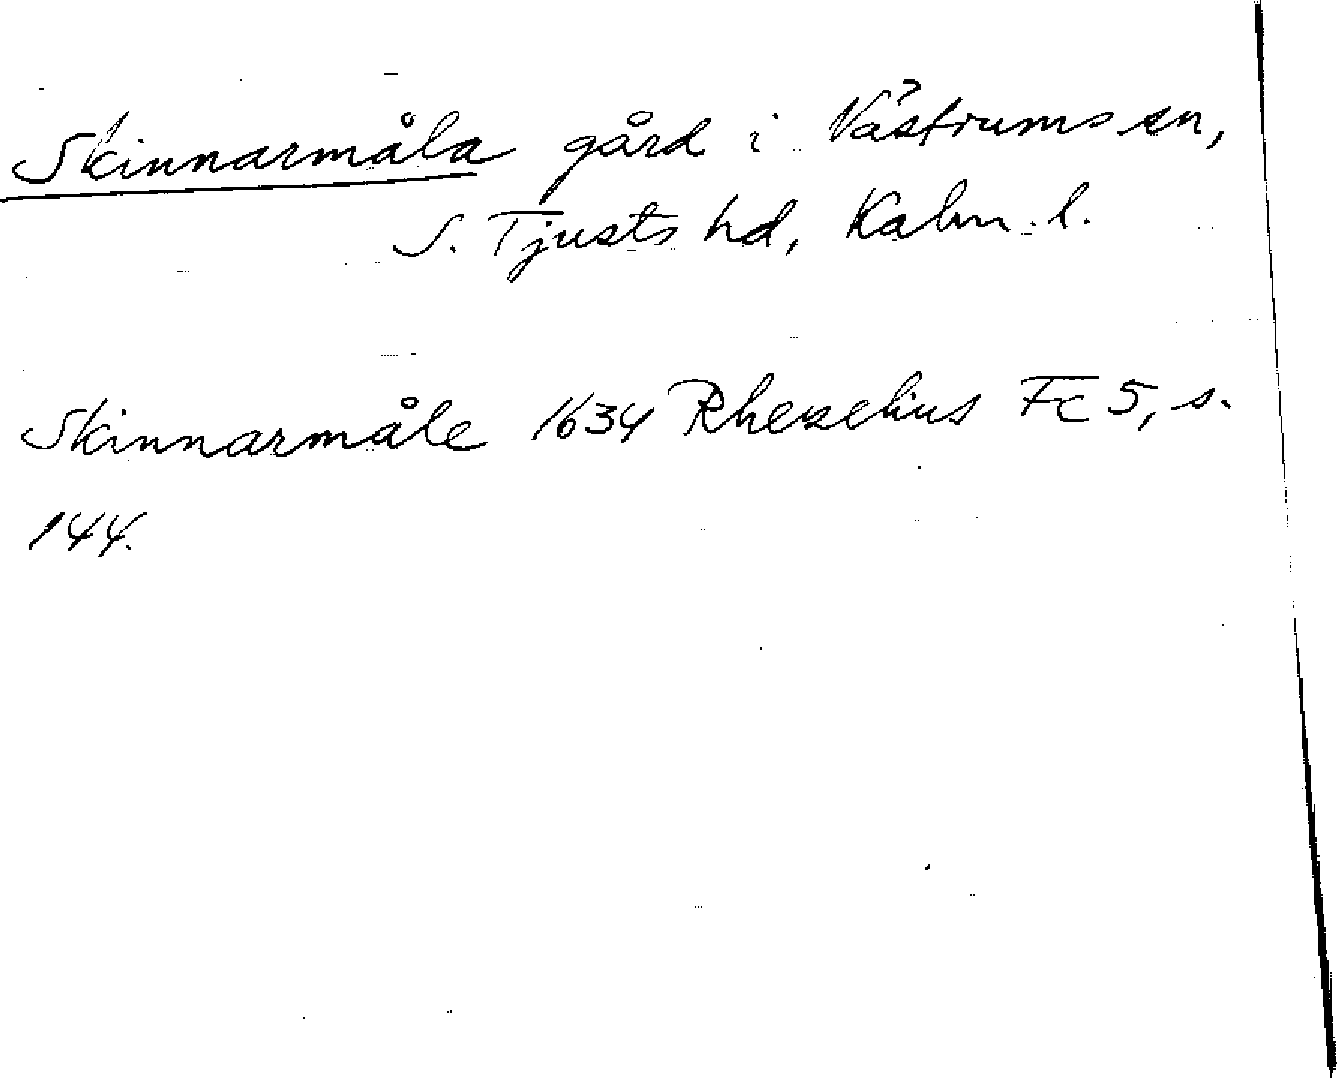 Skinnarmåla gård i Västrums sn,
S. Tjusts hd, Kalm. l.
Skinnarmåle 1634 Rhezelius Fc 5, s.
144.